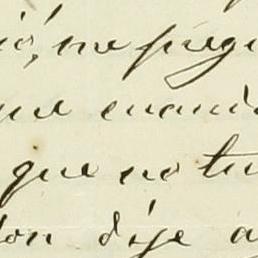 ió, me preg
que cuand
que no tu
don dije a